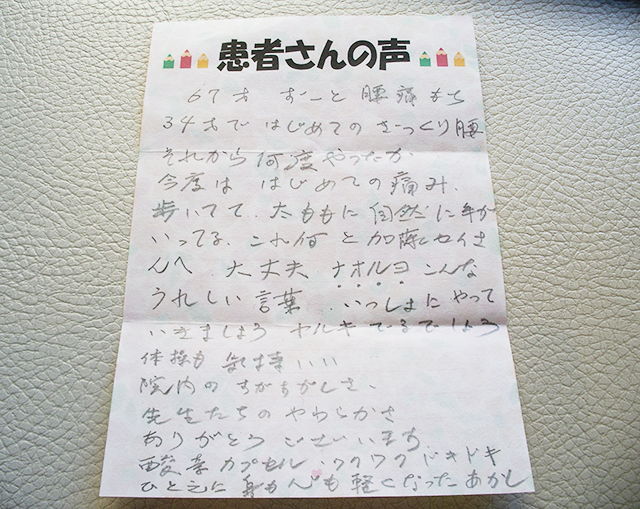 患者さんの声
67才 ずーと 腰痛もち
34才で はじめての ぎっくり腰
それから 何度 やったか
今度は はじめての 痛み、
歩いてて、太ももに 自然に手が
いってる、これ何 と 加藤セイさ
んへ 大丈夫 ナオルヨ こんな
うれしい 言葉 、いっしょに やって
いきましょう ヤルキ でるでしょう
体操も 食事 いい
院内の すがすがしさ、
先生たちの やわらかさ
ありがとう ございます
酸素カプセル、ワクワク ドキドキ
ひとえに 身も 軽くなったあかし